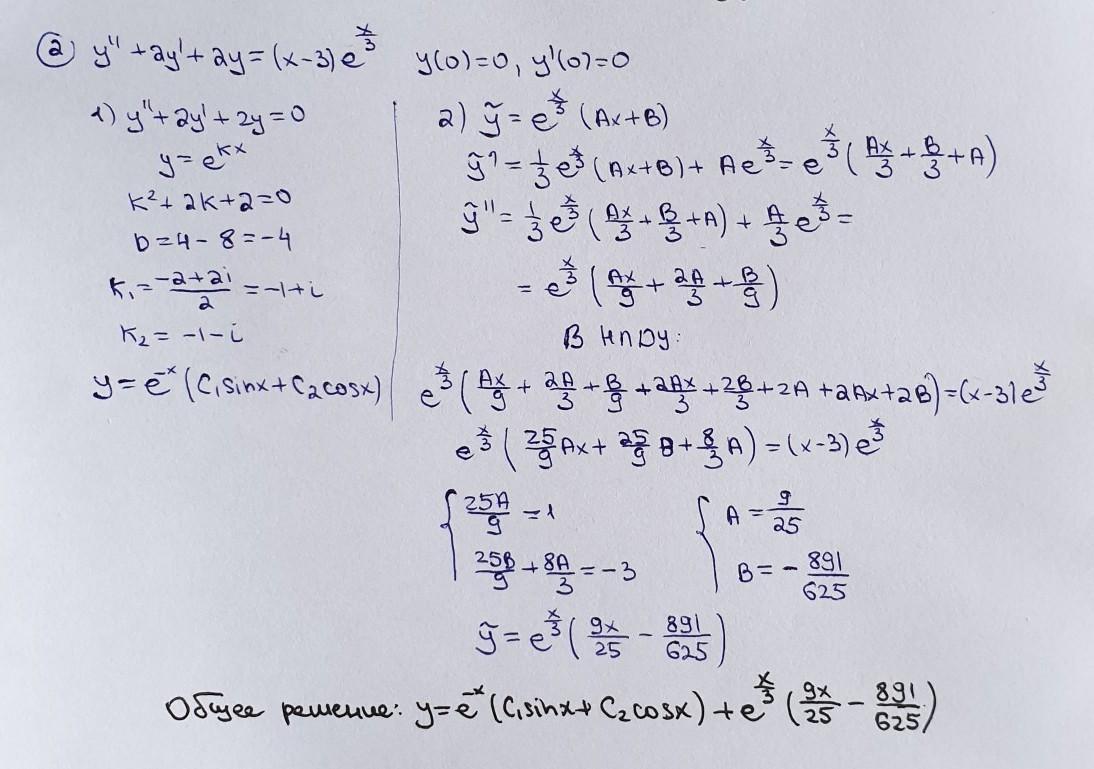 ② y'' + 2y' + 2y = (x-3) e^(x/3)    y(0)=0, y'(0)=0
1) y'' + 2y' + 2y = 0
y = e^(kx)
k² + 2k + 2 = 0
D = 4 - 8 = -4
k₁ = (-2+2i)/2 = -1+i
k₂ = -1-i
y = e^(-x) (C₁sinx + C₂cosx)
2) ỹ = e^(x/3) (Ax+B)
ỹ' = 1/3 e^(x/3) (Ax+B) + A e^(x/3) = e^(x/3) (Ax/3 + B/3 + A)
ỹ'' = 1/3 e^(x/3) (Ax/3 + B/3 + A) + A/3 e^(x/3) =
= e^(x/3) (Ax/9 + 2A/3 + B/9)
В НЛДУ:
e^(x/3) (Ax/9 + 2A/3 + B/9 + 2Ax/3 + 2B/3 + 2A + 2Ax + 2B) = (x-3) e^(x/3)
e^(x/3) (25/9 Ax + 25/9 B + 8/3 A) = (x-3) e^(x/3)
{ 25A/9 = 1    { A = 9/25
25B/9 + 8A/3 = -3    B = - 891/625
ỹ = e^(x/3) (9x/25 - 891/625)
Общее решение: y = e^(-x) (C₁sinx + C₂cosx) + e^(x/3) (9x/25 - 891/625)